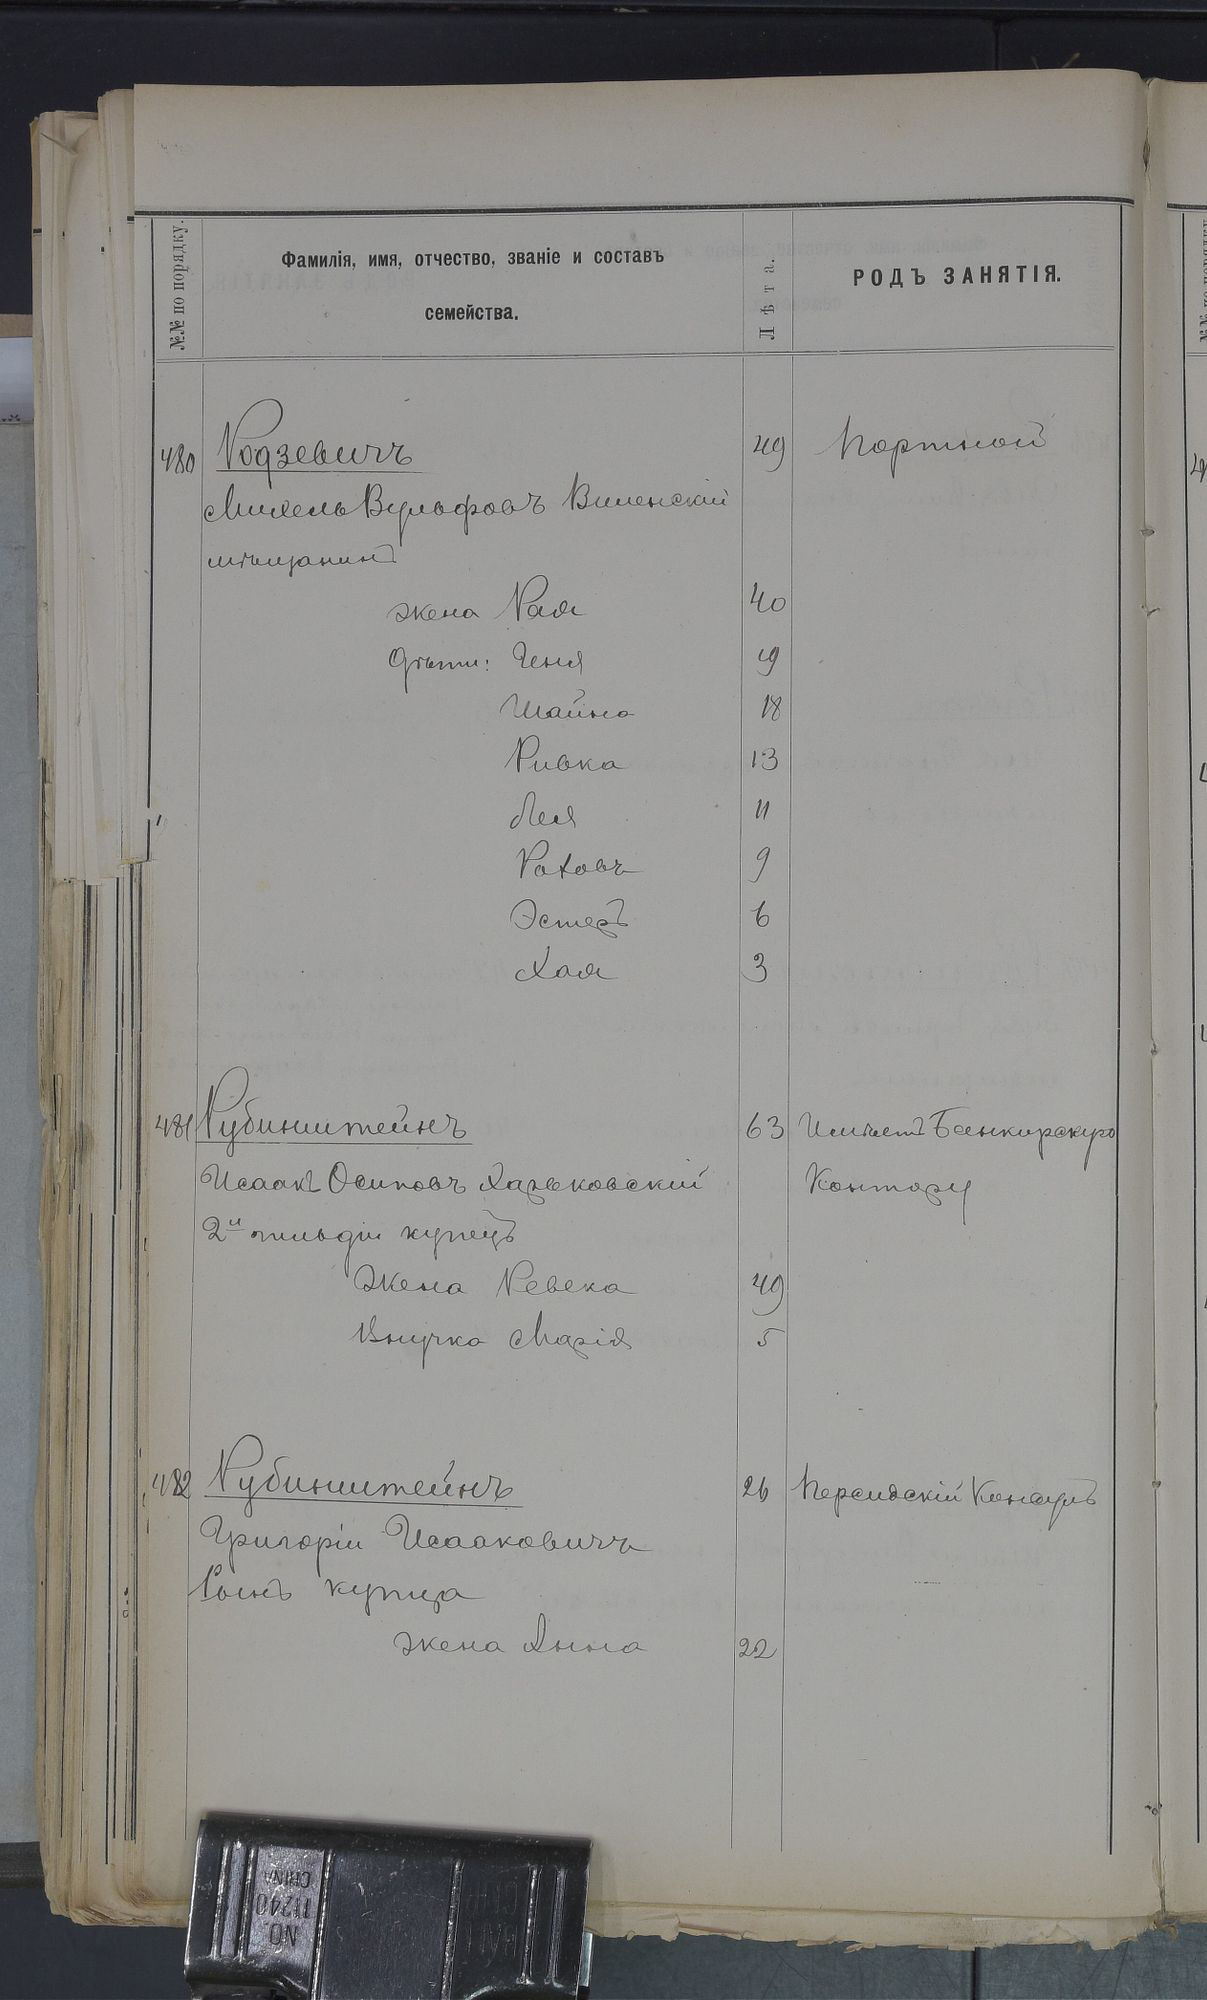 №№ по порядку.
Фамилія, имя, отчество, званіе и составъ
семейства.
Лѣта.
РОДЪ ЗАНЯТІЯ.
480 Родзевичъ 49 Портной
Михель Вульфовъ Виленскій
мѣщанинъ
жена Рая 40
дѣти: Геня 19
Шайна 18
Ривка 13
Лея 11
9
Эстеръ 6
Хая 3
481 Рубинштейнъ 63 Имѣетъ Банкирскую
Исаакъ Осиповъ Харьковскій Контору
2й гильдіи купецъ
Жена Ревека 49
Внучка Марія 5
482 Рубинштейнъ 26 Персидскій Консулъ
Григорій Исааковичъ
Сынъ купца
жена Анна 22
NO.
11240
CHINA